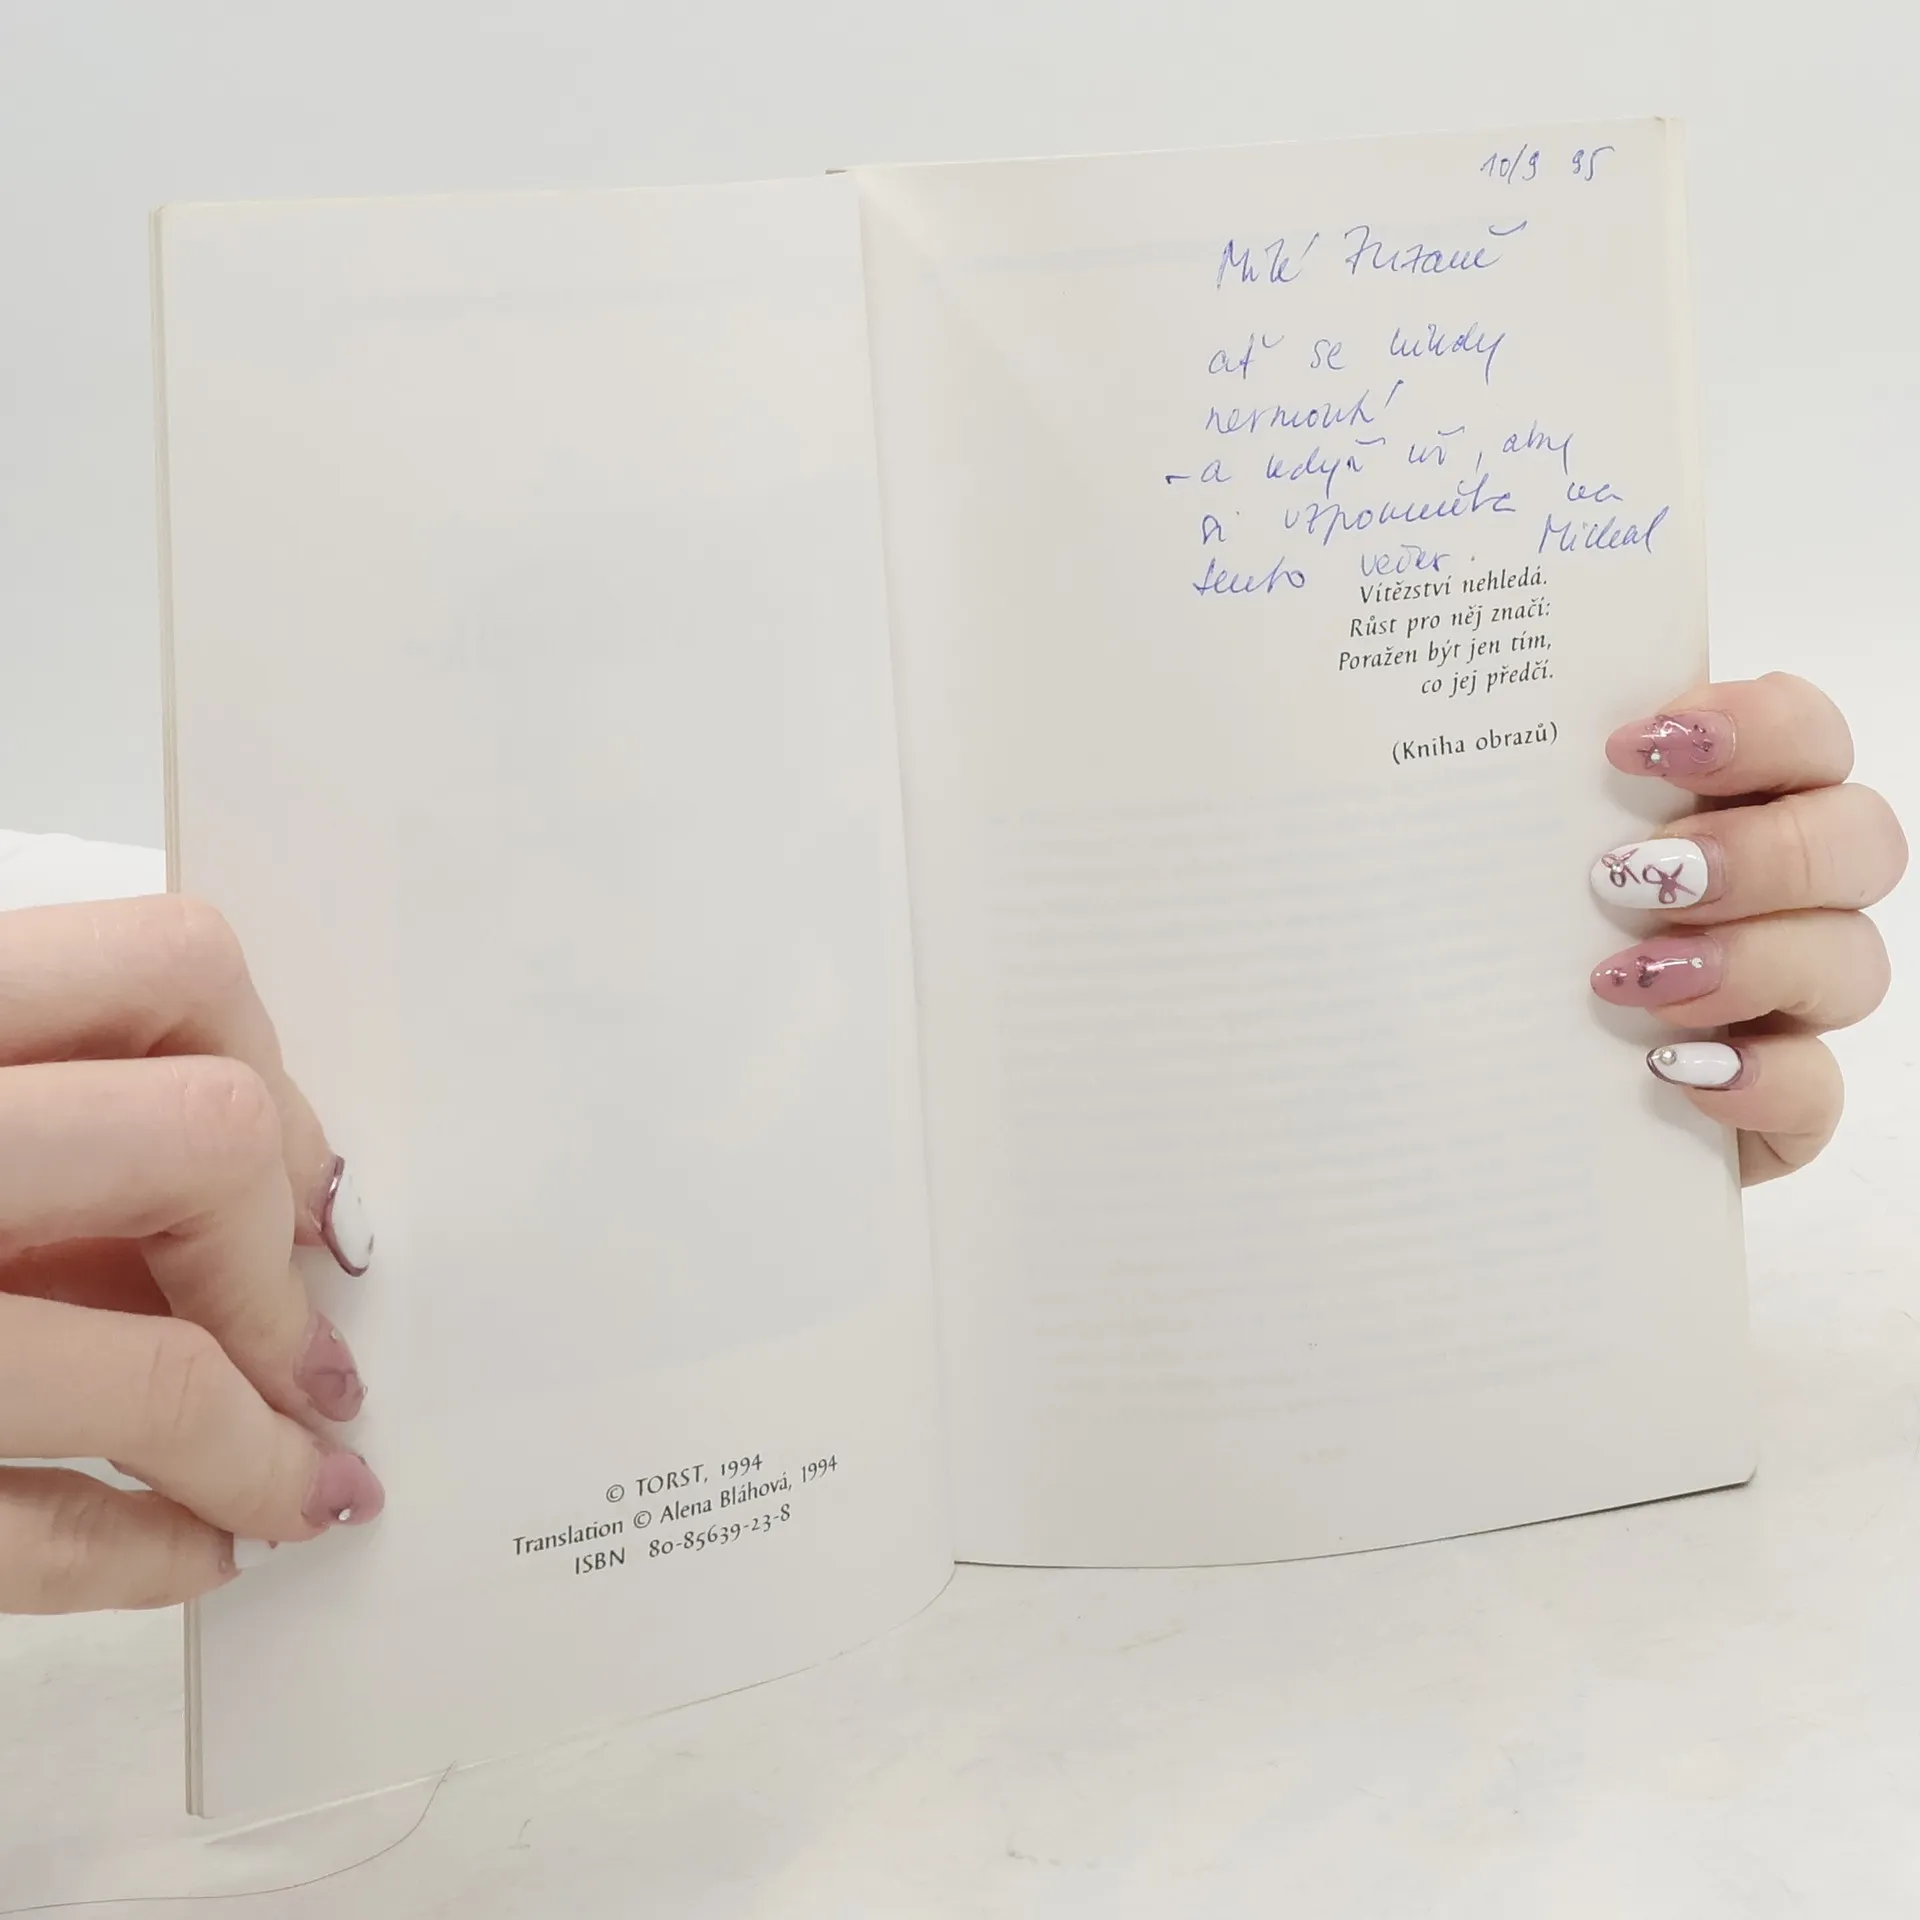 © TORST, 1994
Translation © Alena Bláhová, 1994
ISBN 80-85639-23-8
10/9 95
Milé Zuzaně
ať se nikdy
- a když už, aby
si vzpomněla na
tento večer. Michal
Vítězství nehledá.
Růst pro něj značí:
Poražen být jen tím,
co jej předčí.
(Kniha obrazů)